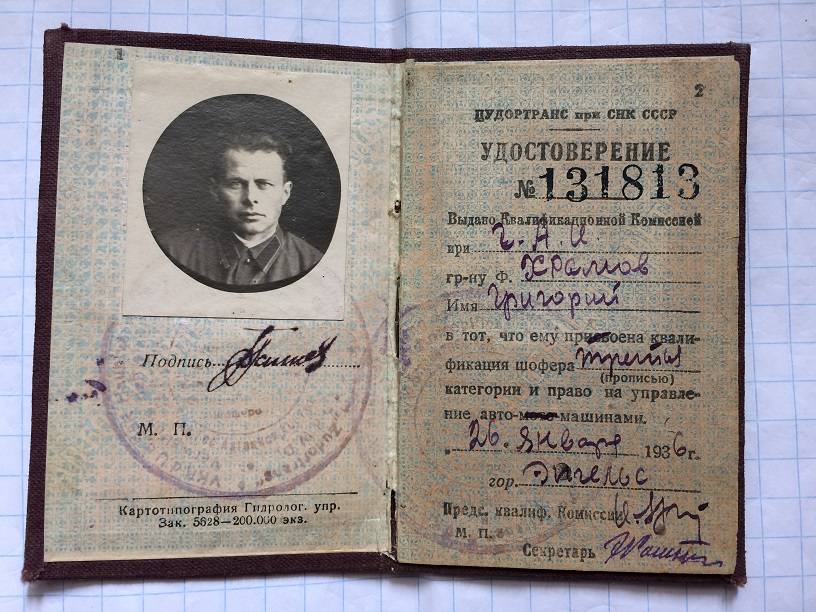 1
Подпись
М. П.
Картотипография Гидролог. упр.
Зак. 5628—200.000 экз.
2
ЦУДОРТРАНС при СНК СССР
УДОСТОВЕРЕНИЕ
№ 131813
Выдано Квалификационной Комиссией
при Г. А. И
гр-ну Ф. Храмов
Имя Григорий
в тот, что ему присвоена квали-
фикация шофера третья
(прописью)
категории и право на управле-
ние авто-мото-машинами.
26. января 1936г.
гор. Энгельс
Предс. квалиф. Комиссии
М. П.
Секретарь